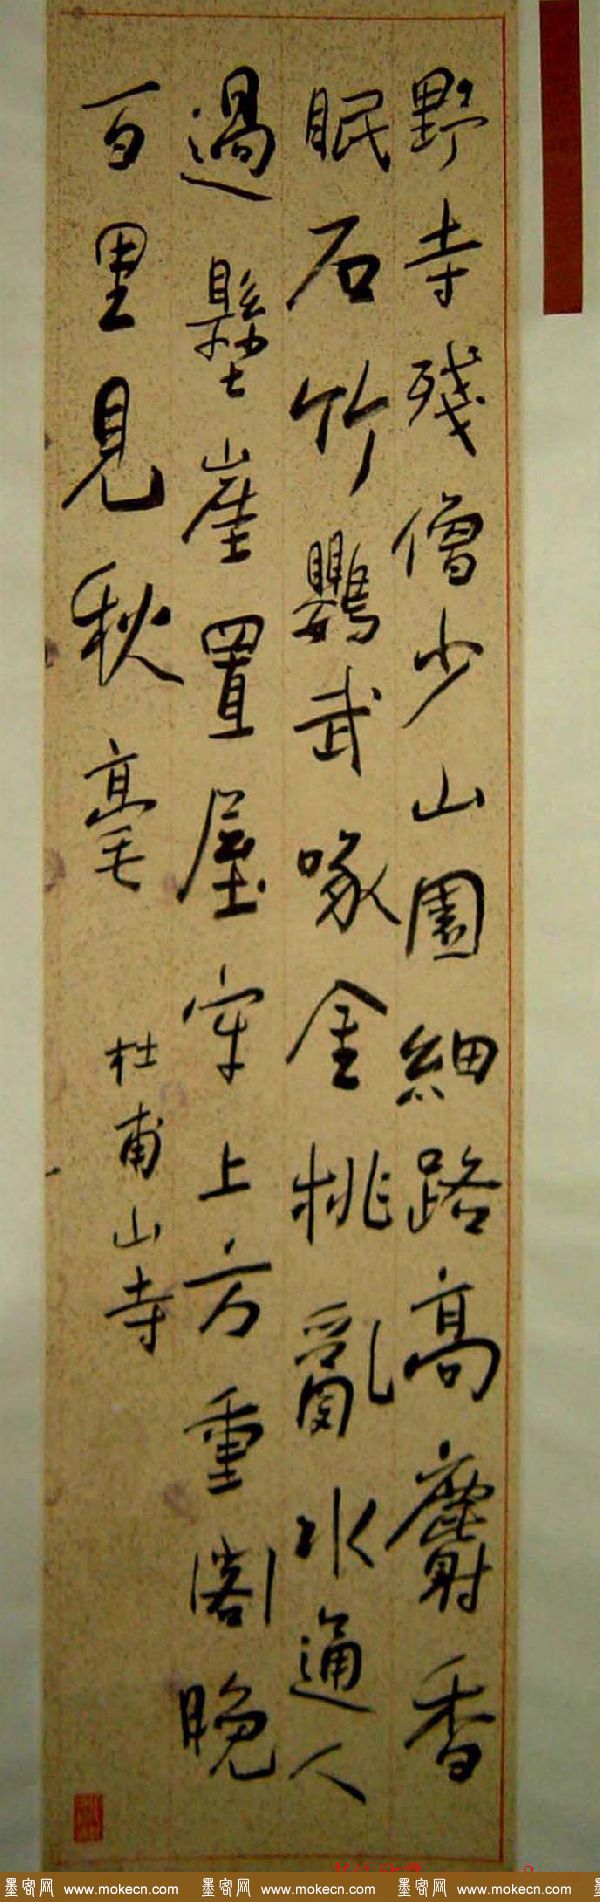 野寺殘僧少山園細路高麝香
眠石竹鸚武啄金桃亂水通人
過懸崖置屋牢上方重閣晚
百里見秋毫
杜甫山寺
墨客网 www.mokecn.com 墨客网 www.mokecn.com 墨客网 www.mokecn.com 墨客网 www.mokecn.com